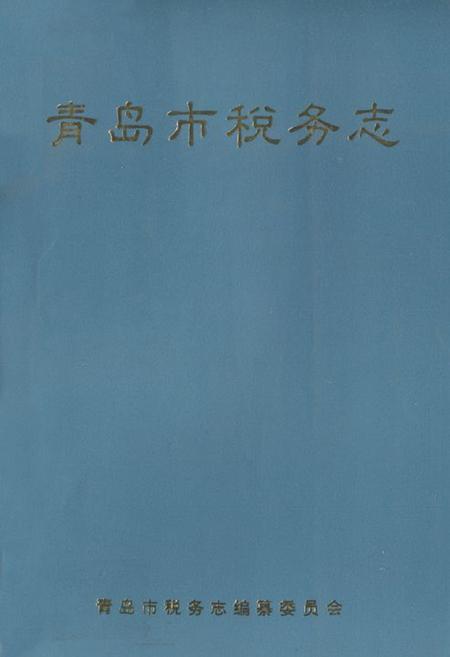 青岛市税务志
青岛市税务志编纂委员会